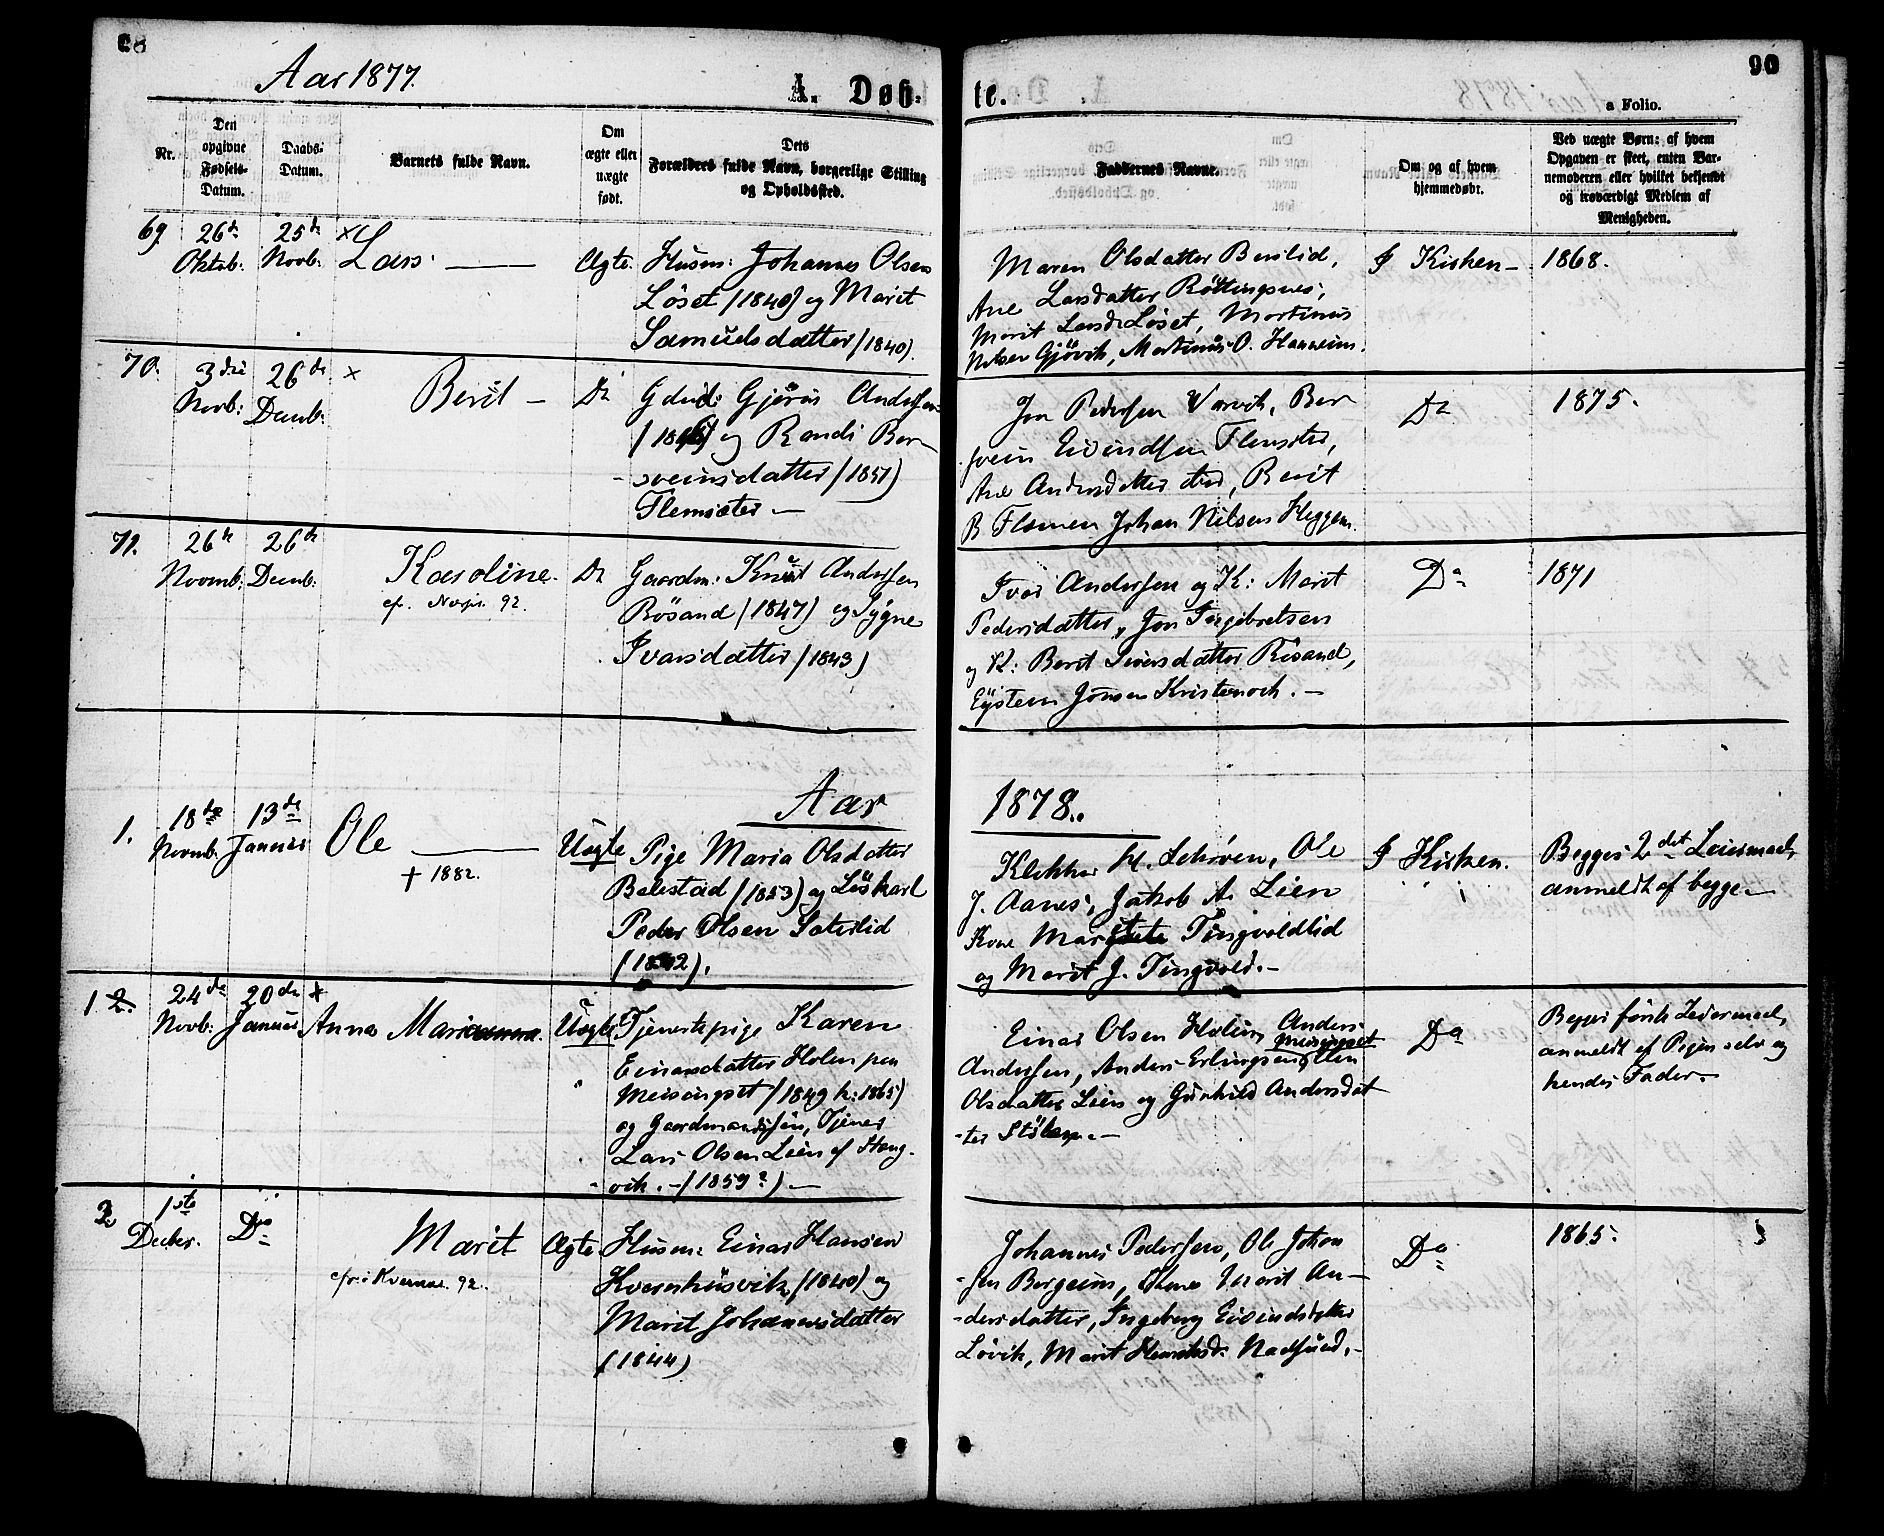 Aar 1877.
A. Døb-
te.
90
a Folio.
Nr.
Den opgivne Fødsels-Datum.
Daabs-Datum.
Barnets fulde Navn.
Om ægte eller uægte født.
Dets Forældres fulde Navn, borgerlige Stilling og Opholdssted.
Faddernes Navne.
Om og af hvem hjemmedøbt.
Ved uægte Børn: af hvem Opgaven er skeet, enten Barnemoderen eller hvilket bekjendt og troværdigt Medlem af Menigheden.
69
26de Oktob:
25de Novb:
x Lars.
Ægte.
Husm: Johannes Olsen
Löset (1840) og Marit
Samuelsdatter (1840).
Maren Olsdatter Berslid,
Ane Larsdatter Röttingsnes,
Marit Larsd. Löset, Martinus
Nilsen Gjövik, Martinus O. Hanseim.
I Kirken
1868.
70.
3die Novb:
26de Decmb:
x Berit
Do
Gdmd: Gjörs Andersen
og Randi Ber-
sveinsdatter (1851)
Flemsæter
Jon Pedersen Varvik, Ber
svein Eivindsen Flemsæter,
Ane Andersdatter, Berit
B Flemsæ Johan Nilsen Heggem.
Do
1875.
71.
26de Novmb:
26de Decmb:
Karoline.
92.
Do
Gaardm: Knut Andersen
Rösand (1847) og Sygne
Ivarsdatter (1843)
Ivar Andersen og K: Marit
Pedersdatter, Jon Ingebretsen
og K: Berit Siversdatter Rösand,
Eystein Jonsen Kristenvik.
Do
1871
Aar
1878.
1.
18de Novmb.
13de Januar
Ole
† 1882.
Uægte
Pige Maria Olsdatter
Belestad (1853) og Löskarl
Peder Olsen Sæterlid
Klokker H. Schrøen, Ole
J. Aanes, Jakob A. Lien
Kone Margrete Tingvoldlid
og Marit J. Tingvold.
I Kirken.
Begges 2det Leiermaal,
anmeldt af begge
1. 2.
24de Novb:
20de Januar
x Anna Marie
Uægte
Tjenestepige Karen
Einarsdatter Holen paa
Meisingset (1849 k: 1865)
og Gaardmandssøn, Tjener
Lars Olsen Lien af Stang-
vik. (1859?)
Einar Olsen Holen, Anders
Meisingset
Andersen, Anders Erlingsen, Ellen
Olsdatter Lien og Gunhild Andersdat
ter Stölen.
Do
Begges første Leiermaal,
anmeldt af Pigen selv og
hendes Fader.
1ste Decbr.
Do
Marit
cfr. i Kvernes 92.
Ægte
Husm: Einar Hansen
Kvernhusvik (1840) og
Marit Johannesdatter
(1844)
Johannes Pedersen, Ole Johan
sen Bergeim, Kone Marit An-
dersdatter, Ingeborg Eivindsdatter
Lövik, Marit Henriksd. Nadsund.
Do
1865.